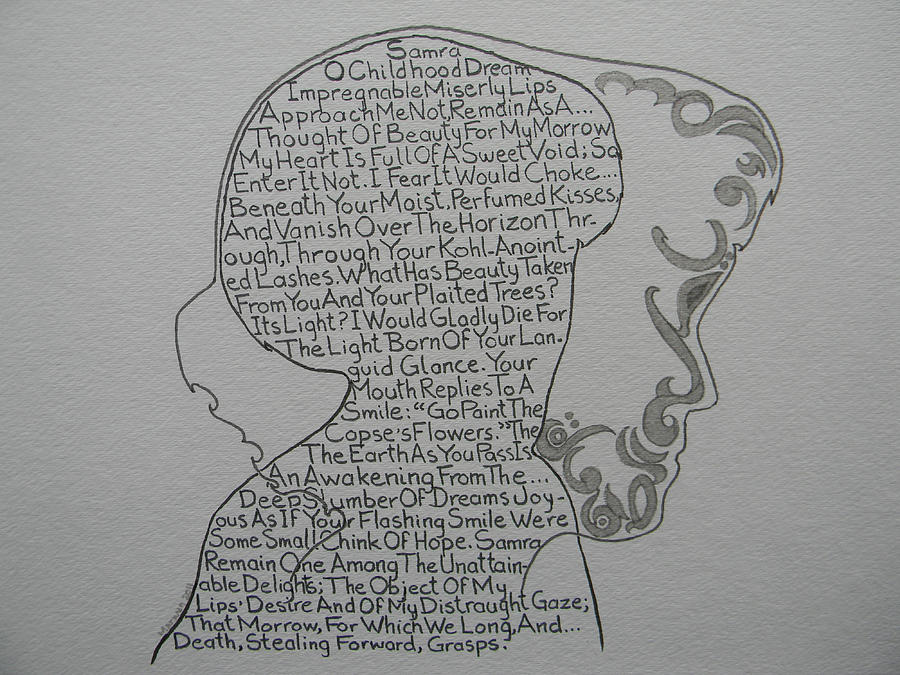 Samra
O Childhood Dream
Impregnable Miserly Lips
Approach Me Not, Remain As A...
Thought Of Beauty For My Morrow
My Heart Is Full Of A Sweet Void; So
Enter It Not. I Fear It Would Choke...
Beneath Your Moist, Perfumed Kisses,
And Vanish Over The Horizon Thr-
ough, Through Your Kohl-Anoint-
ed Lashes. What Has Beauty Taken
From You And Your Plaited Trees?
Its Light? I Would Gladly Die For
The Light Born Of Your Lan-
guid Glance. Your
Mouth Replies To A
Smile: "Go Paint The
Copse's Flowers." The
The Earth As You Pass Is
An Awakening From The...
Deep Slumber Of Dreams Joy-
ous As If Your Flashing Smile Were
Some Small Chink Of Hope. Samra
Remain One Among The Unattain-
able Delights; The Object Of My
Lips' Desire And Of My Distraught Gaze;
That Morrow, For Which We Long, And...
Death, Stealing Forward, Grasps.